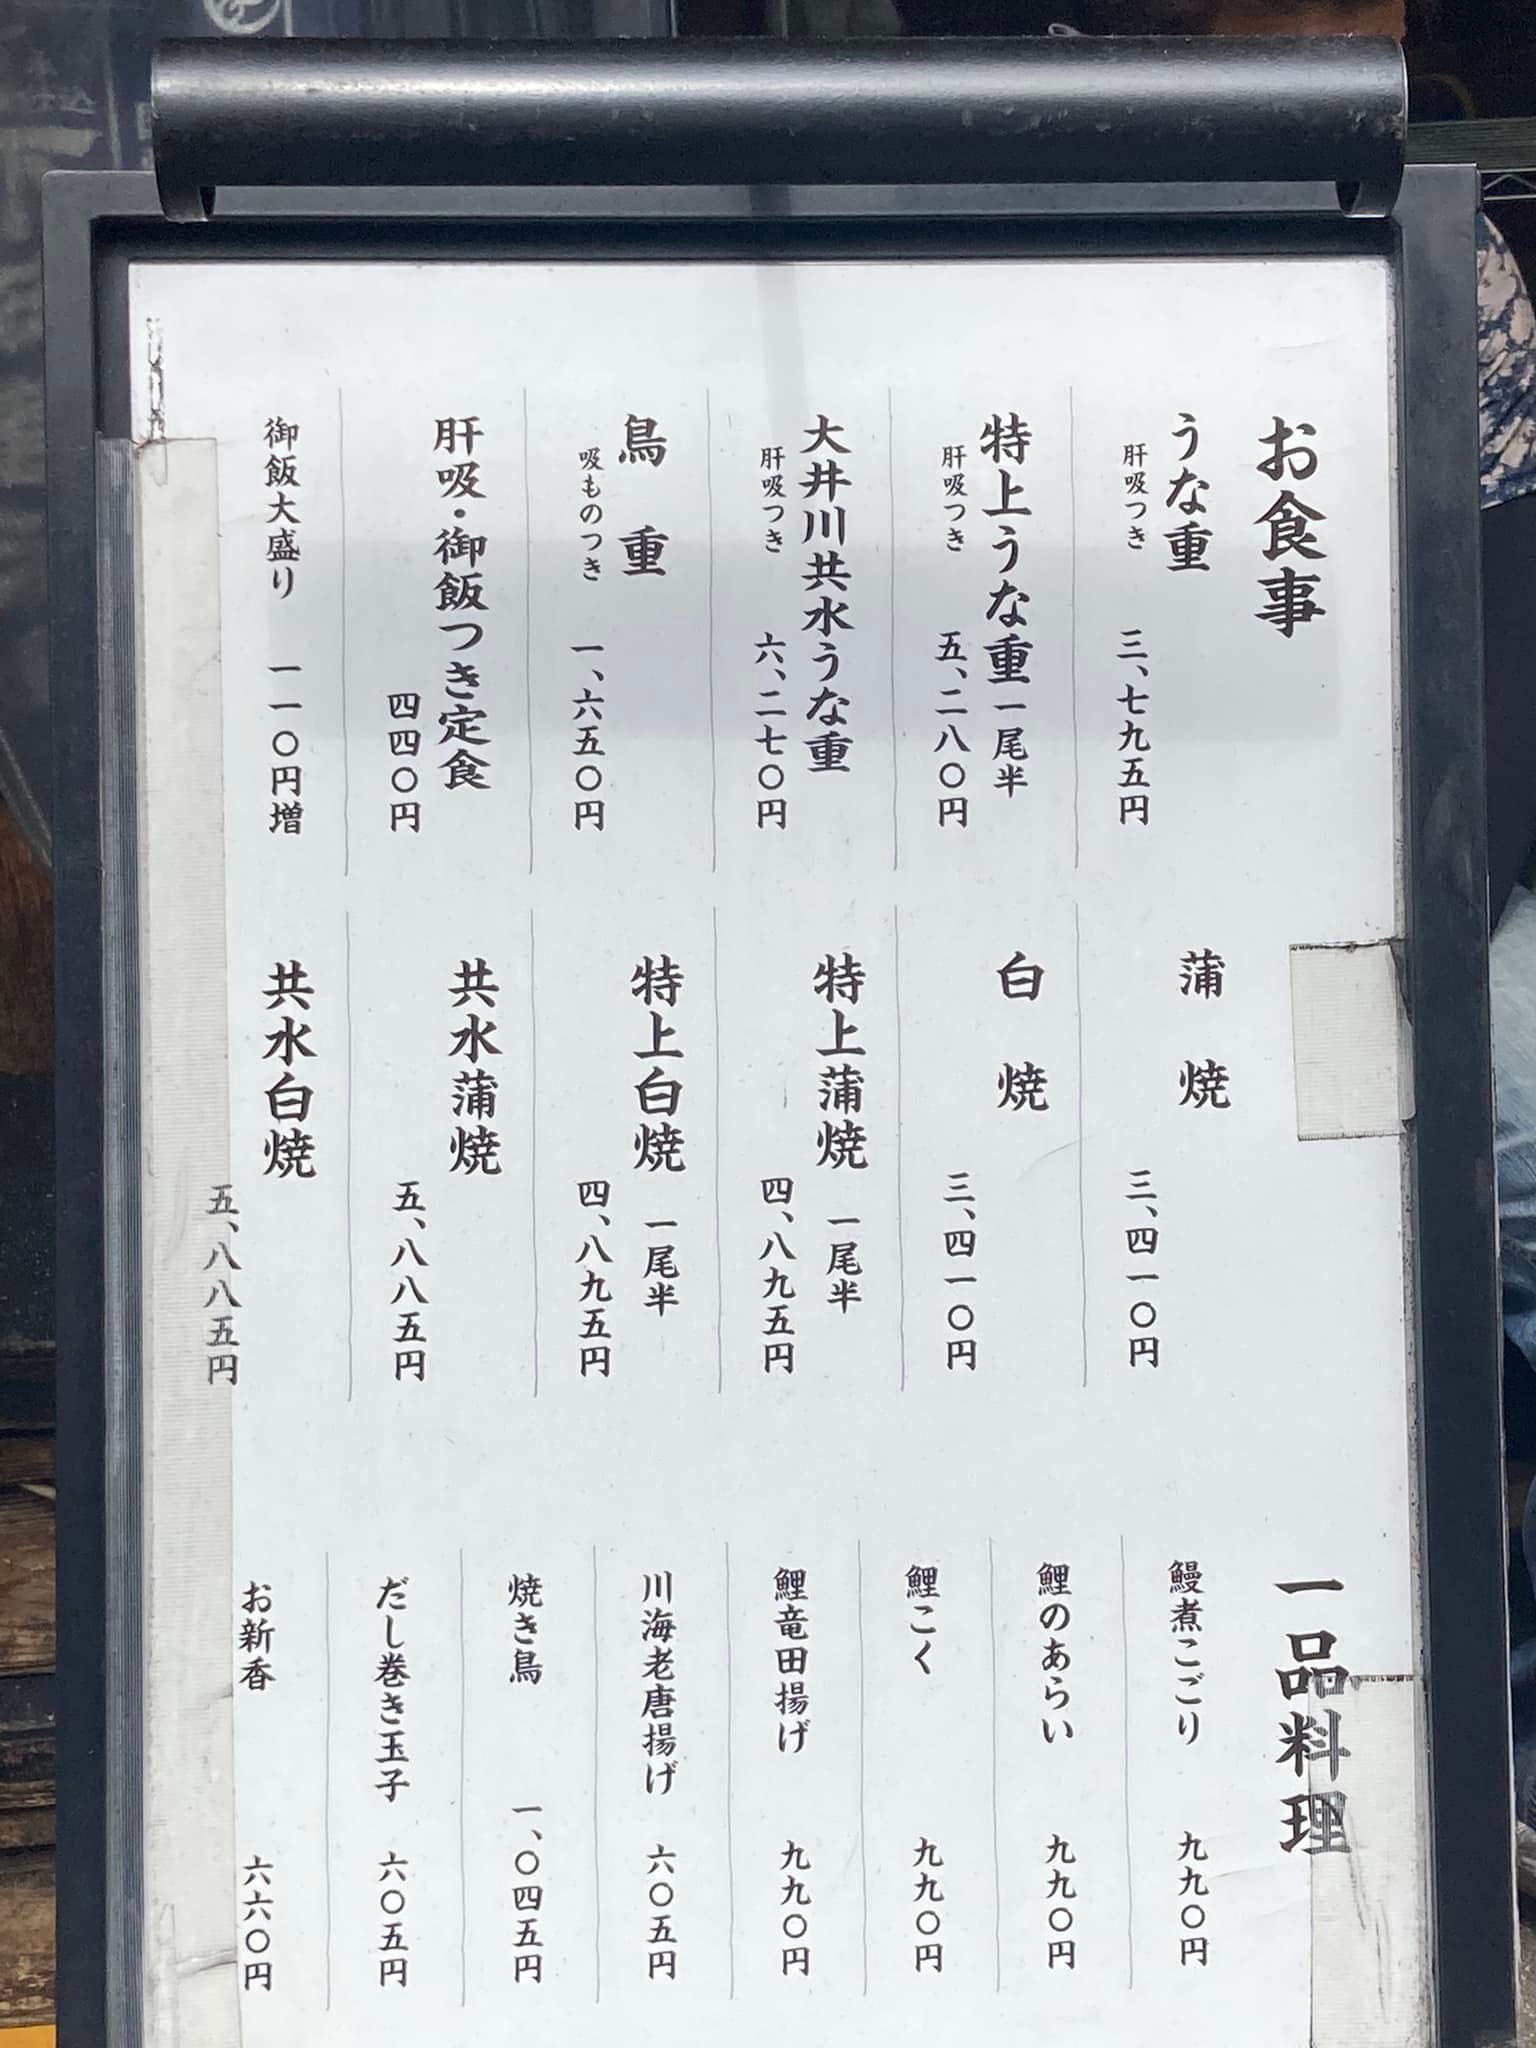 お食事
うな重
肝吸つき 三、七九五円
特上うな重 一尾半
肝吸つき 五、二八〇円
大井川共水うな重
肝吸つき 六、二七〇円
鳥重
吸ものつき 一、六五〇円
肝吸・御飯つき定食
四四〇円
御飯大盛り 一一〇円増
蒲焼
三、四一〇円
白焼
三、四一〇円
特上蒲焼 一尾半
四、八九五円
特上白焼 一尾半
四、八九五円
共水蒲焼
五、八八五円
共水白焼
五、八八五円
一品料理
鰻煮こごり 九九〇円
鯉のあらい 九九〇円
鯉こく 九九〇円
鯉竜田揚げ 九九〇円
川海老唐揚げ 六〇五円
焼き鳥 一、〇四五円
だし巻き玉子 六〇五円
お新香 六六〇円